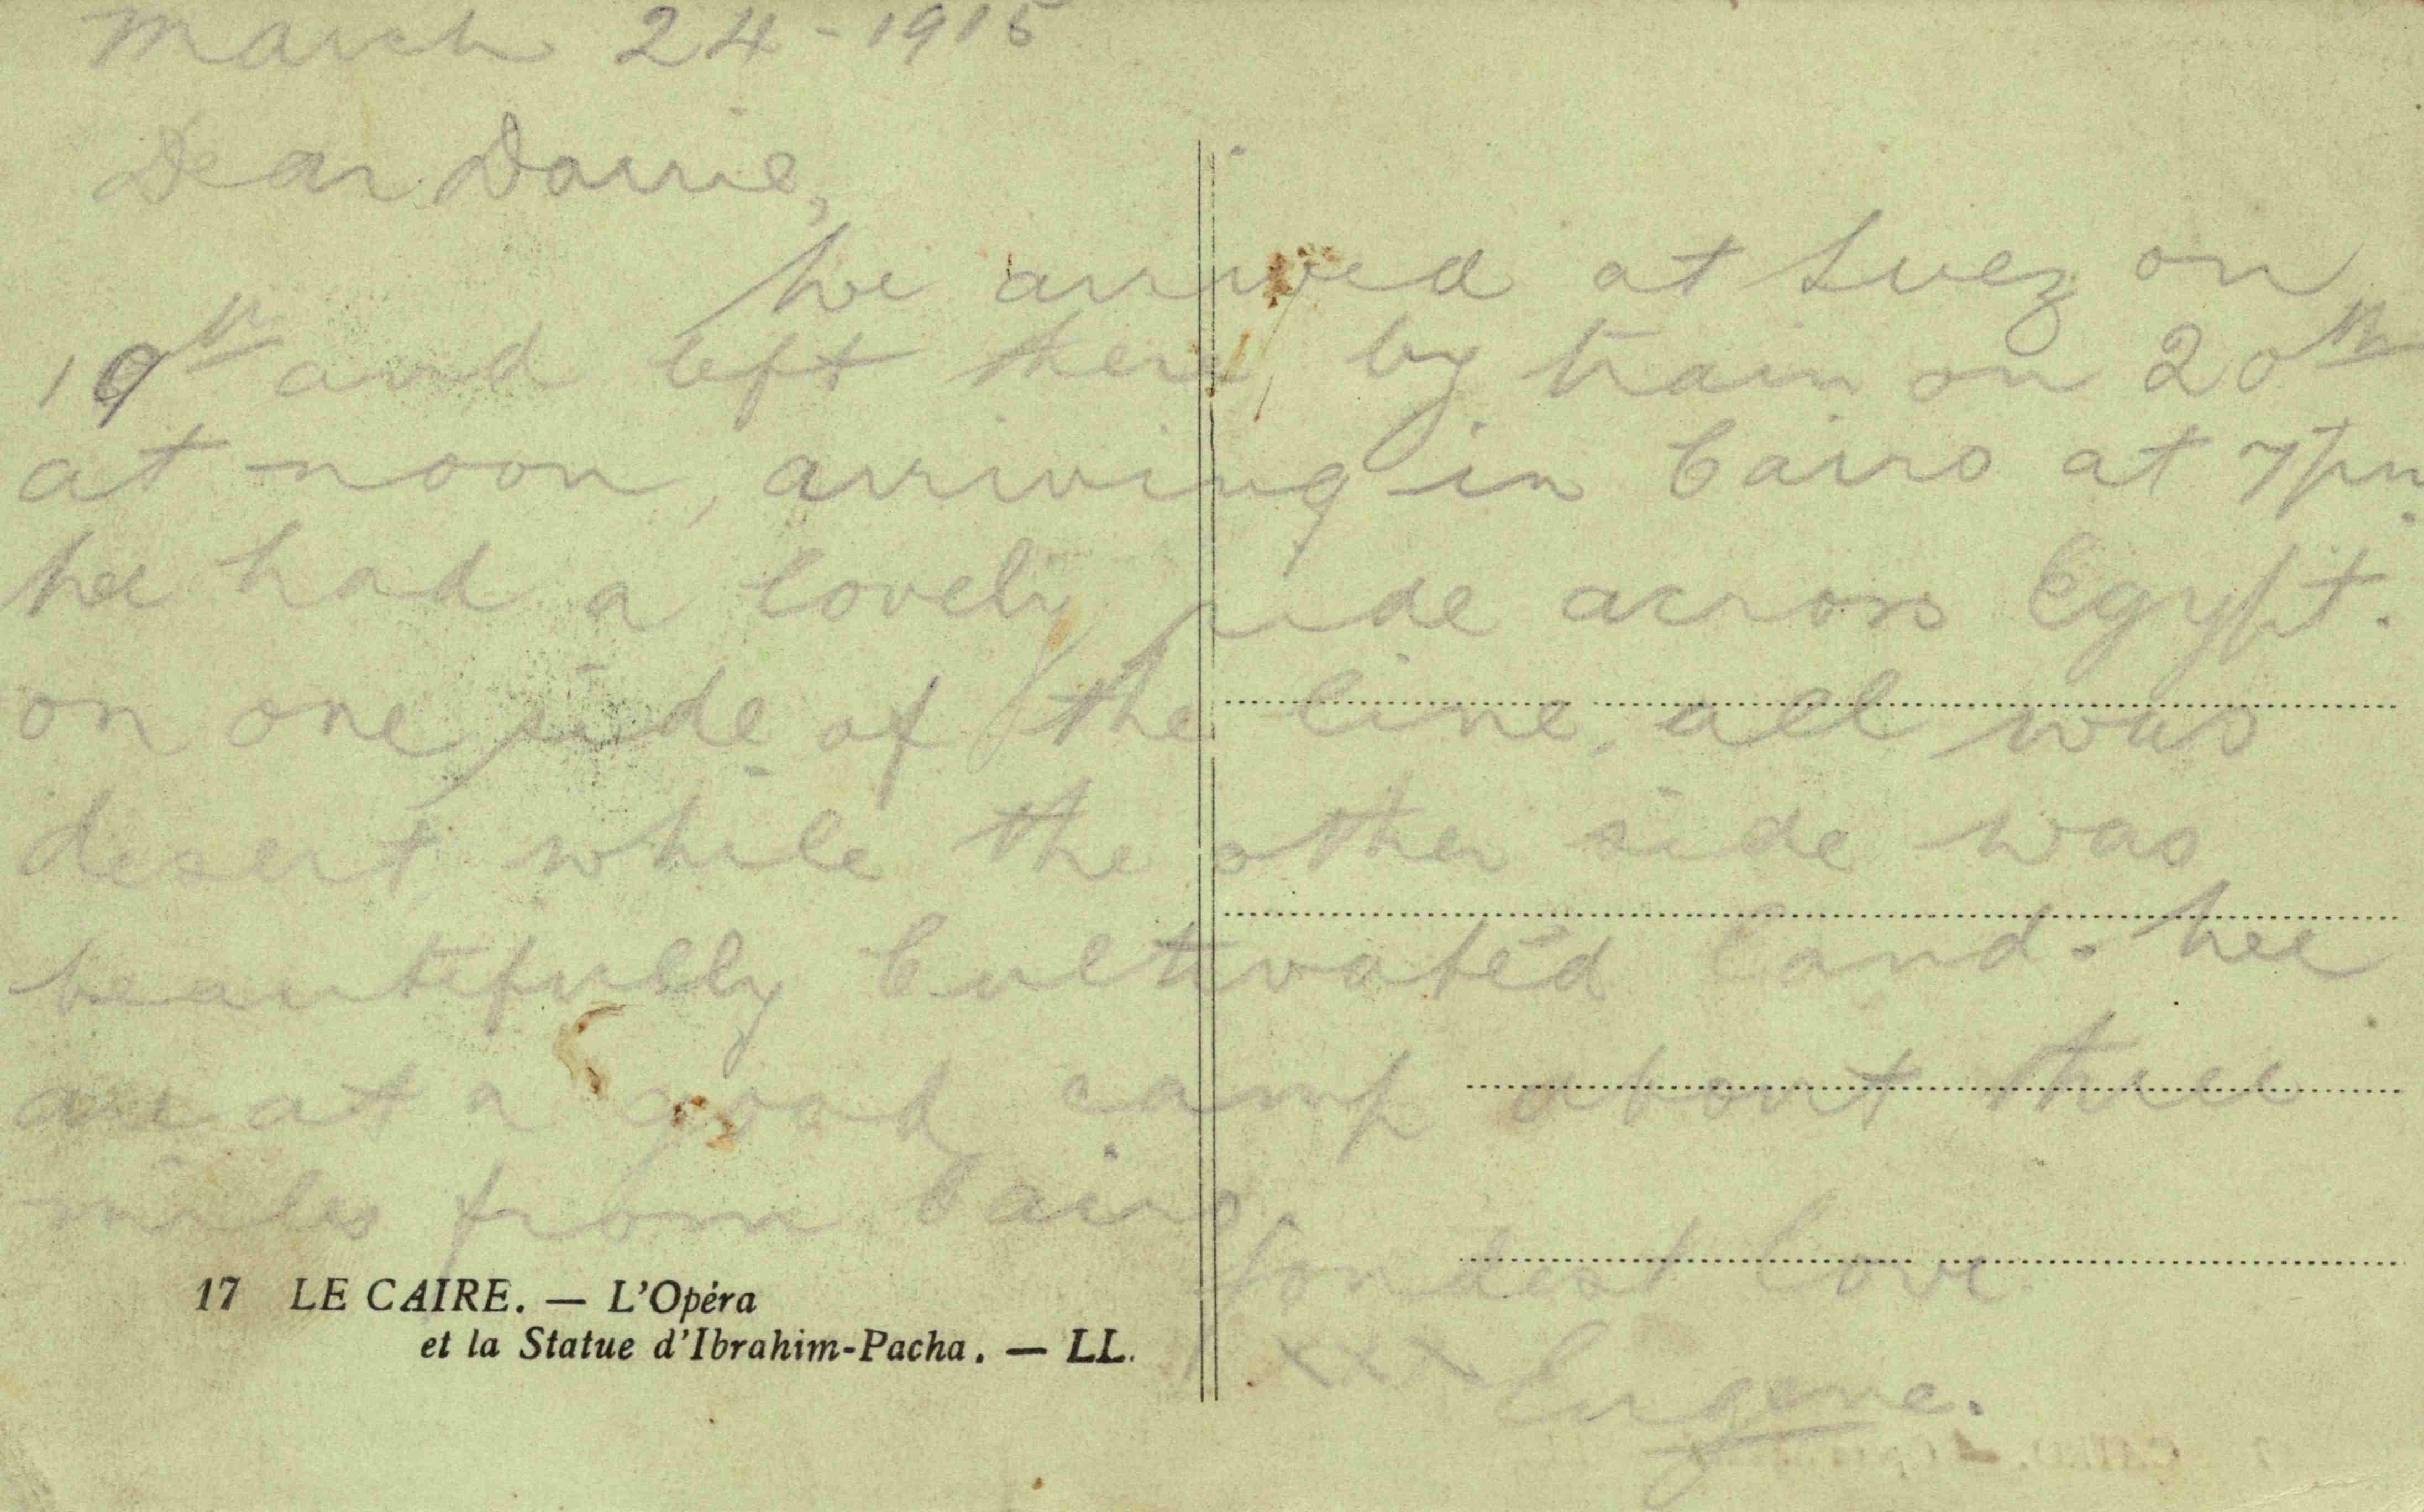 March 24 - 1915
Dear Dorrie,
We arrived at Suez on
19th and left there by train on 20th
at noon, arriving in Cairo at 7pm.
We had a lovely ride across Egypt.
on one side of the line, all was
desert while the other side was
beautifully Cultivated land. We
are at a good camp about three
miles from Cairo.
fondest love
xxx Eugene.
17 LE CAIRE. — L'Opéra
et la Statue d'Ibrahim-Pacha. — LL.